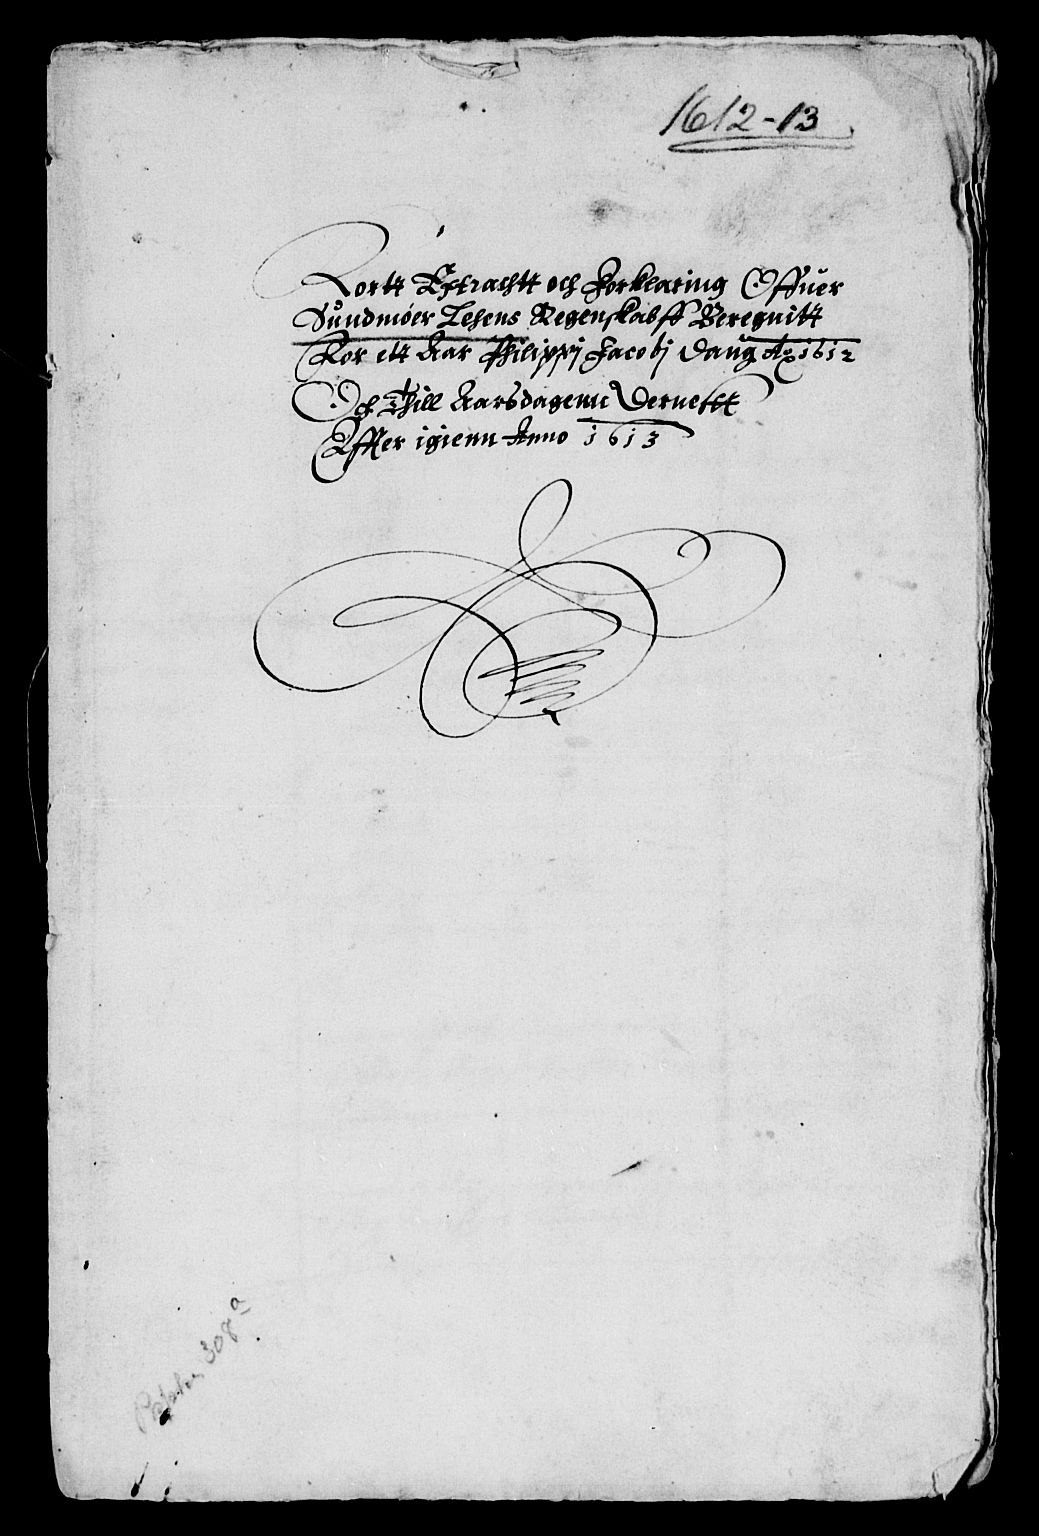 1612-13
Kortt Extrachtt och Forklaring Offuer
Sundmöer Lehens Regenskabff Beregnitt
For ett Aar Philippj Jacobj Daug Ao 1612
Och Thill Aarsdagenn Dernestt
Effter igienn Anno 1613
308a